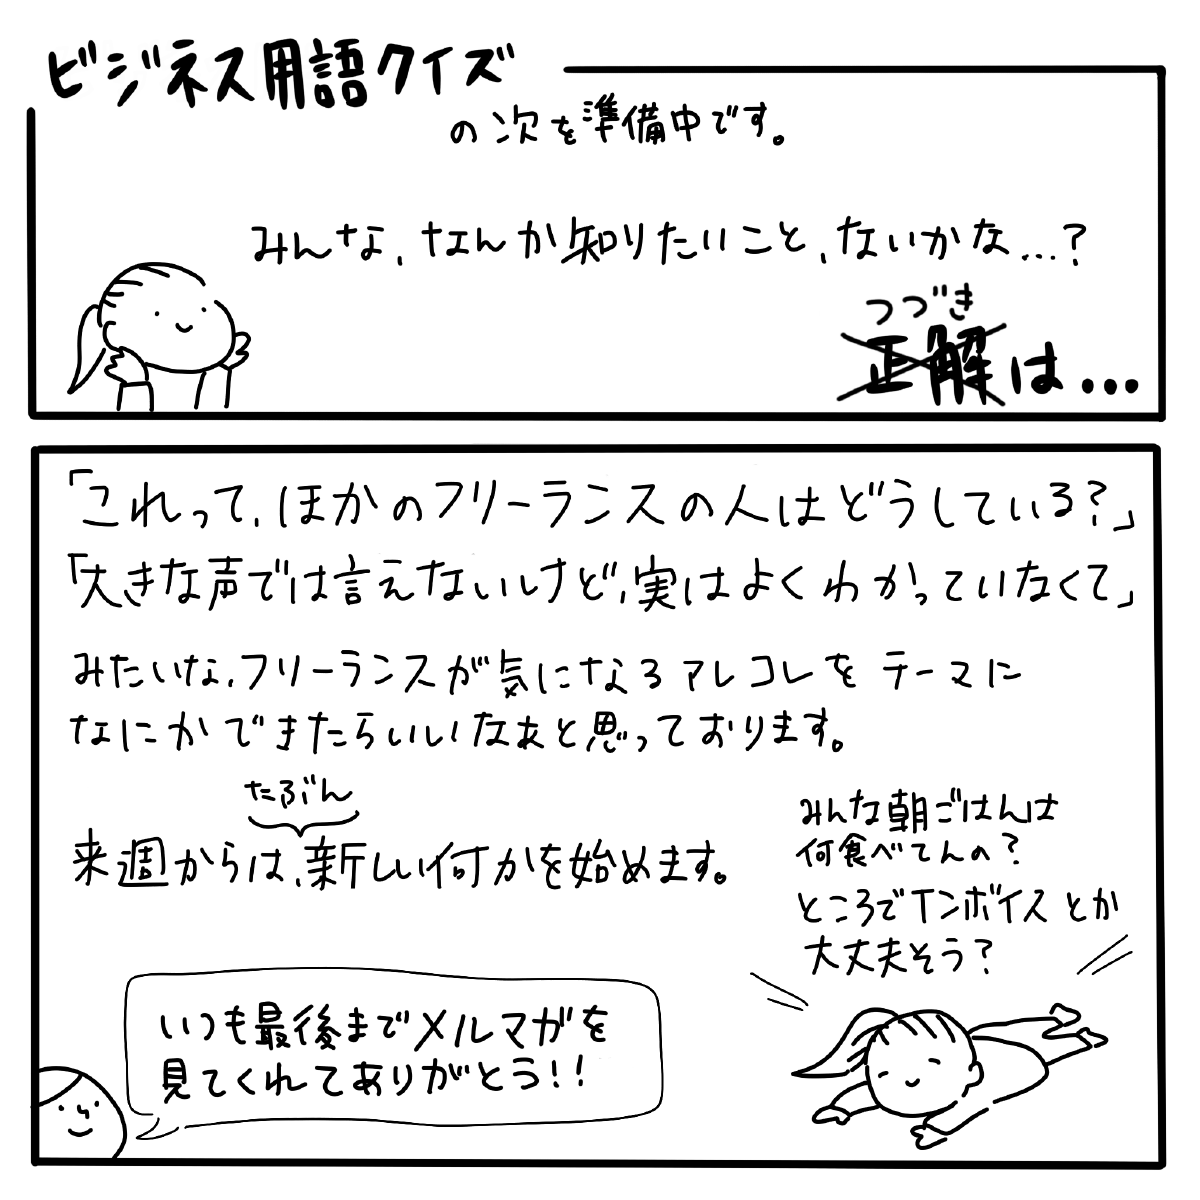 ビジネス用語クイズ
の次を準備中です。
みんな、なんか知りたいこと、ないかな…?
つづき
正解は…
「これって、ほかのフリーランスの人はどうしている?」
「大きな声では言えないけど、実はよくわかっていなくて」
みたいな、フリーランスが気になるアレコレを テーマに
なにかできたらいいなぁと思っております。
たぶん
来週からは、新しい何かを始めます。
みんな朝ごはんは
何食べてんの?
ところでインボイスとか
大丈夫そう?
いつも最後までメルマガを
見てくれてありがとう!!